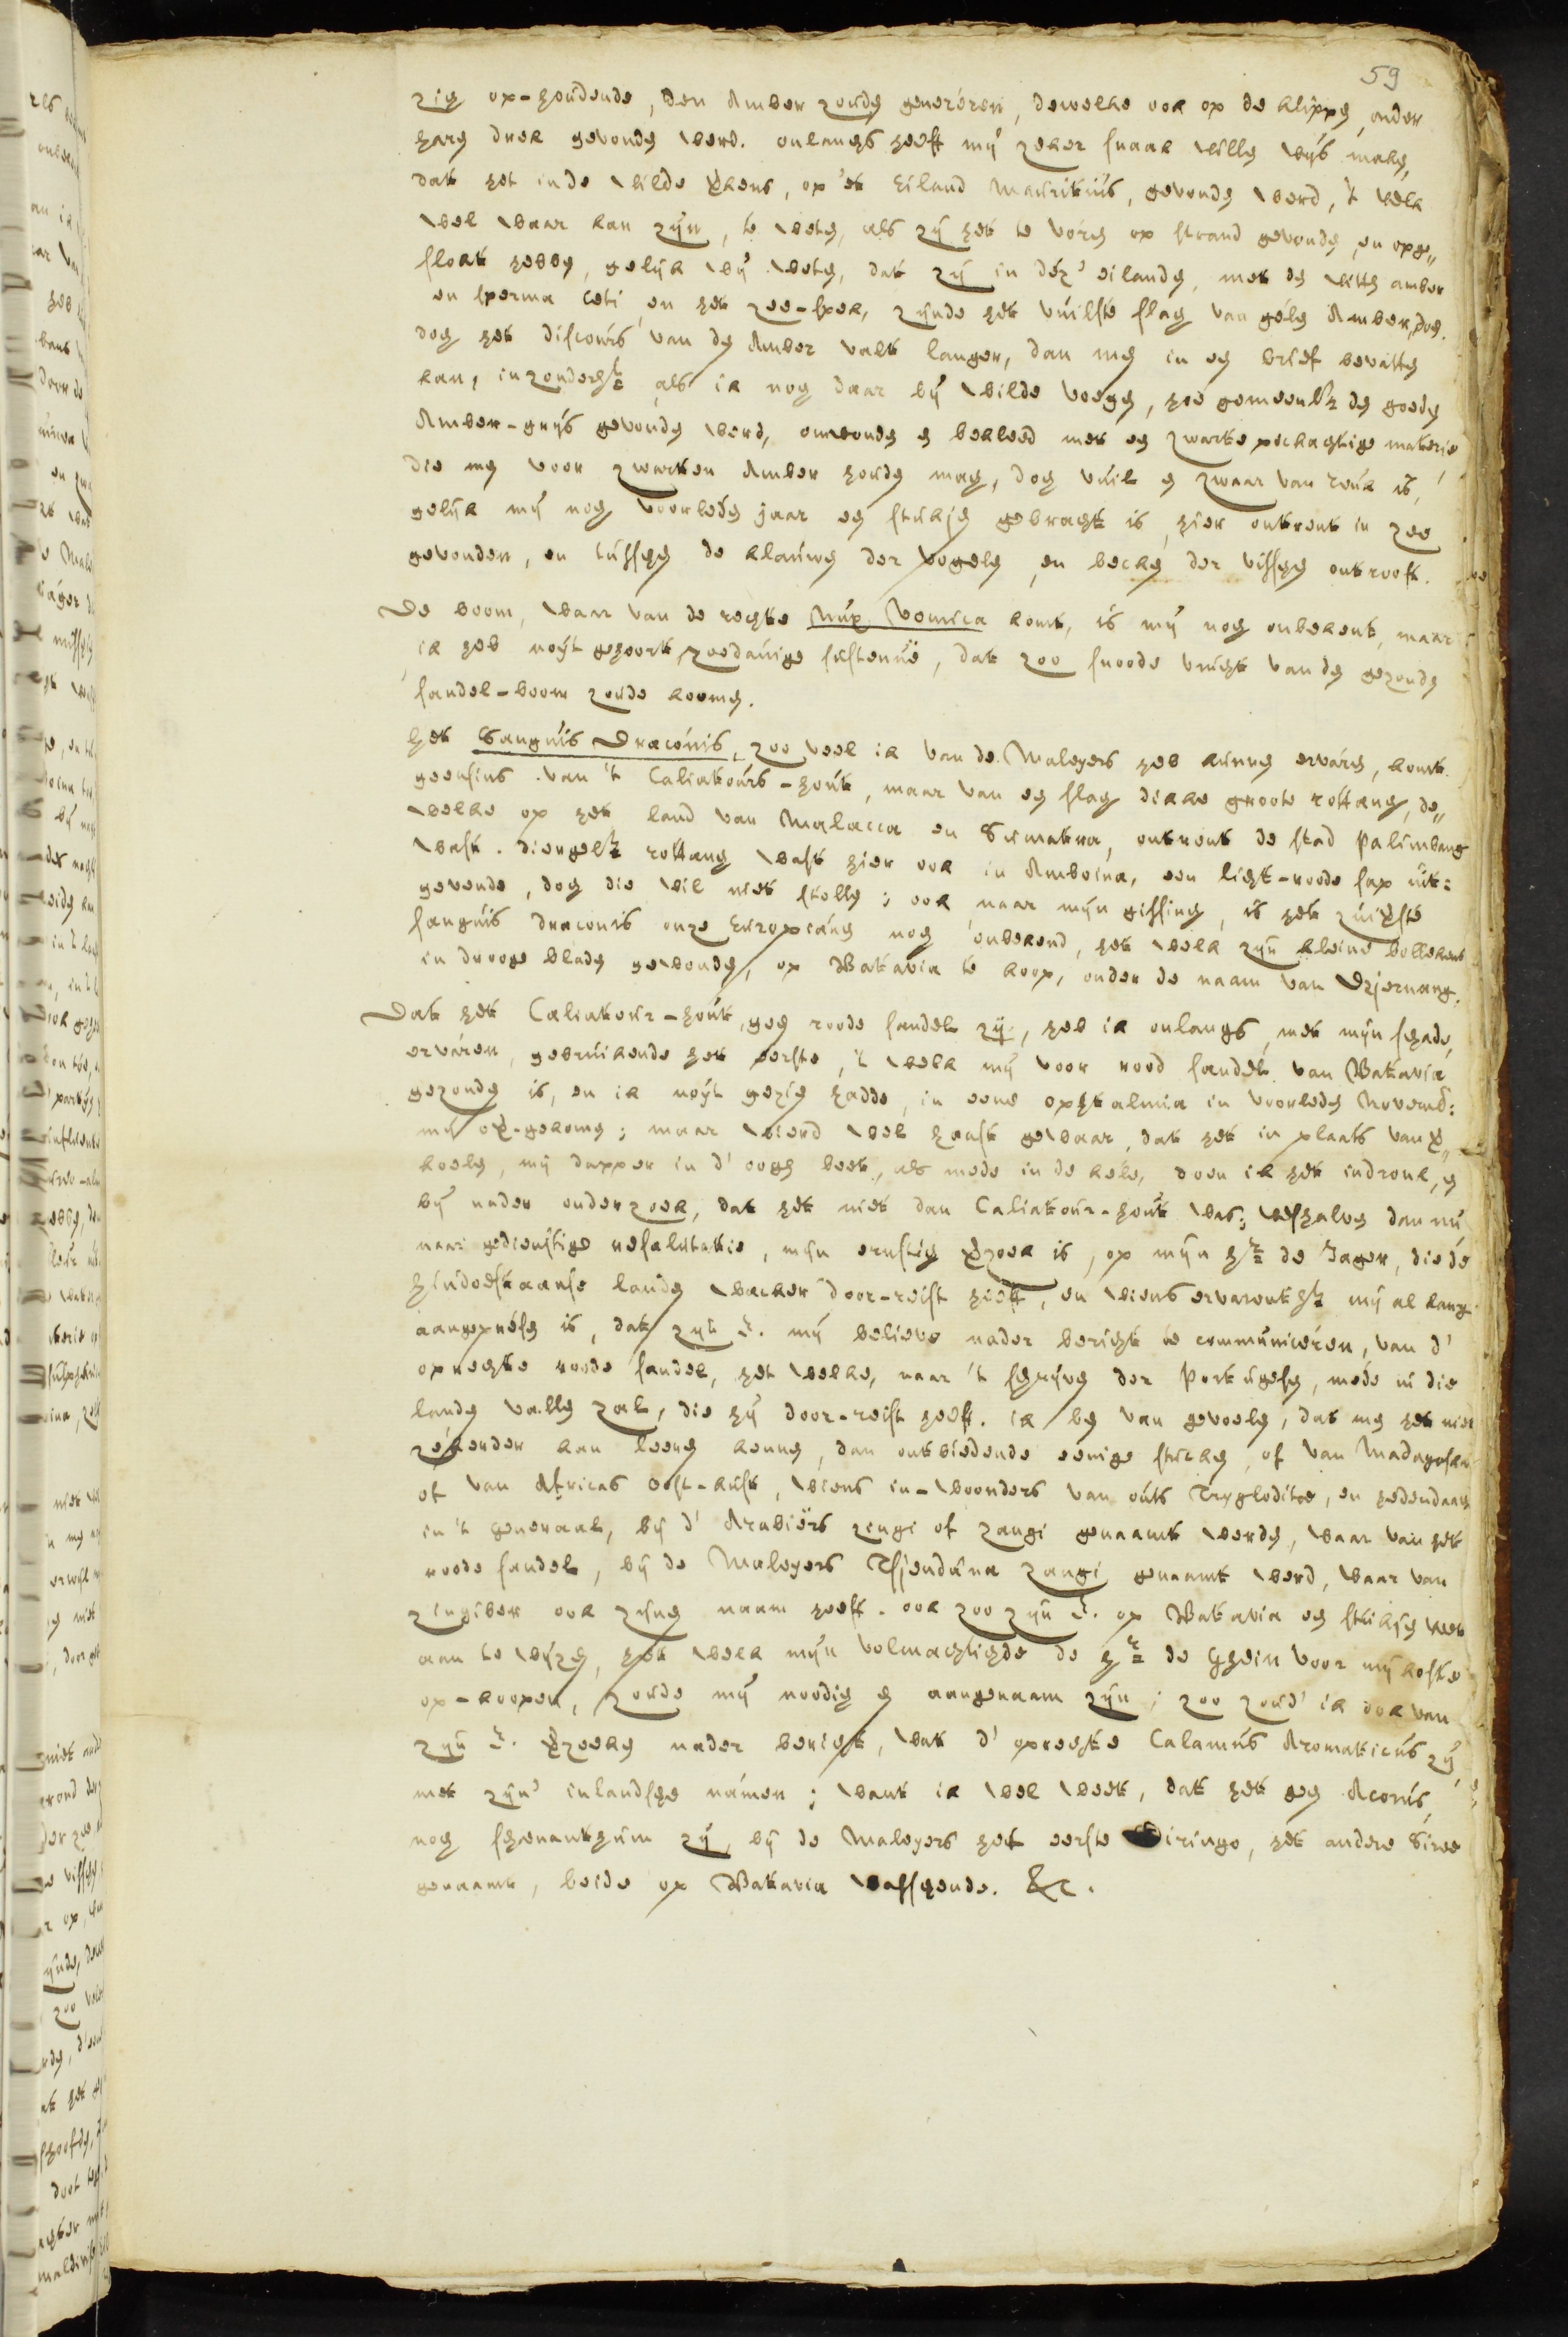 59
zig op-houdende, den Amber zoude genereren, dewelke ook op de klippen, onder
haren drek gevonden werd. onlangs heeft mij zeker snaak willen wijs maken,
dat het in de wilde verkens, op 'et Eiland Mauritius, gevonden werd, 't welk
wel waar kan zijn, te weten, als zij het te voren op strand gevonden, en opge„
slokt hebben, gelijk wij weten, dat zij in dez' eilanden, met den witten amber
en sperma ceti, en het zee-spek, zijnde het vuilste slag van gelen Amber, doe.
dog het discours van den Amber valt langer, dan men in een brief bevatten
kan, inzonderheit als ik nog daar bij wilde voegen, hoe gemeenlijk den goeden
Amber-grijs gevonden werd, omwonden en bekleed met een zwarte pekachtige materie
die men voor zwarten Amber houden mag, dog vuil en zwaar van reuk is,
gelijk mij nog voorleden jaar een stukjen gebracht is, hier ontrent in zee
gevonden, en tusschen de klauwen der vogelen, en becken der visschen ontrooft.
De boom, waar van de rechte Nux Vomica komt, is mij nog onbekent, maar
ik heb noijt gehoort, zoodanige sustenue, dat zoo snoode vrucht van den gezonden
sandel-boom zoude koomen.
Het Sanguis Draconis, zoo veel ik van de Maleyers heb kunnen ervaren, komt
geensins van 't Caliatours-hout, maar van een slag dikke groote rottang, de„
welke op het land van Malacca en Sumatra, ontrent de stad Palimbang
wast. diergelijke rottang wast hier ook in Amboina, een licht-roode sap uit=
gevende, dog die wil niet stollen; ook naar mijn gissing, is het zuiverste
sanguis draconis onze Europeanen nog onbekend, het welk zijn kleine bollekens
in drooge bladen gewonden, op Batavia te koop, onder de naam van Dsjernang.
Dat het Caliatour-hout, geen roode sandel zij, heb ik onlangs, met mijn schade,
ervaren, gebruikende het eerste, 't welk mij voor rood sandel van Batavia
gezonden is, en ik noijt gezien hadde, in eene ophtalmia in voorleden Novemb:
mij over-gekomen; maar wierd wel haast gewaar, dat het in plaats van ver„
koelen, mij dapper in d' oogen beet, als mede in de kele, doen ik het indronk, en
bij nader onderzoek, dat het niet dan Caliatour-hout was; weshalven dan nu
naar gedienstige resalutatie, mijn ernstig verzoek is, op mijn heer de Jager, die de
hindoestaanse landen wacker door-reist heeft, en wiens ervarentheit mij al lang
aangepresen is, dat zijn E. mij believe nader bericht te communiceren, van d'
oprechte roode sandel, het welke, naar 't schrijven der Portugesen, mede in die
landen vallen zal, die hij door-reist heeft. ik ben van gevoelen, dat men het niet
zekerder kan leeren kennen, dan ontbiedende eenige stucken, of van Madagaskar
of van Africas Oost-kust, wiens in-woonders van outs Tryglodites, en hedendaags
in 't generaal, bij d' Arabiërs zengi of zangi genaamt werden, waar van het
roode sandel, bij de Maleyers Tsjendana zangi genaamt werd, waar van
zingiber ook zijnen naam heeft. ook zoo zijn E. op Batavia een stukjen weet
aan te wijzen, het welk mijn volmachtichde de heer de Ghein voor mij koste
op-koopen, zoude mij noodig en aangenaam zijn; zoo zoud' ik ook van
zijn E. verzoeken nader bericht, wat d' oprechte Calamus Aromaticus zij,
met zijn' inlandsche namen; want ik wel weet, dat het geen Acorus,
nog schenanthum zij, bij de Maleyers het eerste Diringo, het andere Siree
genaamt, beide op Batavia wasschende. &c.